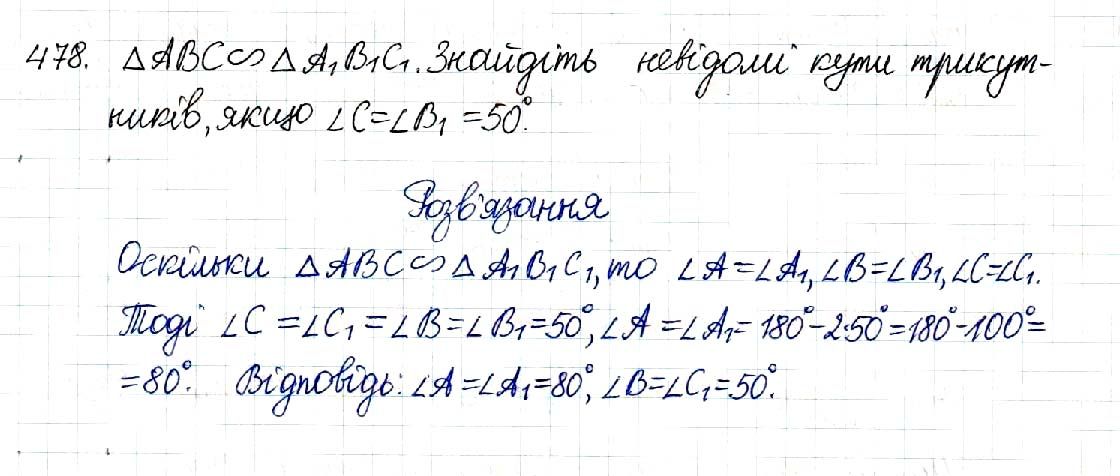 478. △ABC∽△A₁B₁C₁. Знайдіть невідомі кути трикут-
ників, якщо ∠C=∠B₁=50°.
Розв'язання
Оскільки △ABC∽△A₁B₁C₁, то ∠A=∠A₁, ∠B=∠B₁, ∠C=∠C₁.
Тоді ∠C=∠C₁=∠B=∠B₁=50°, ∠A=∠A₁=180°-2·50°=180°-100°=
=80°. Відповідь: ∠A=∠A₁=80°, ∠B=∠C₁=50°.